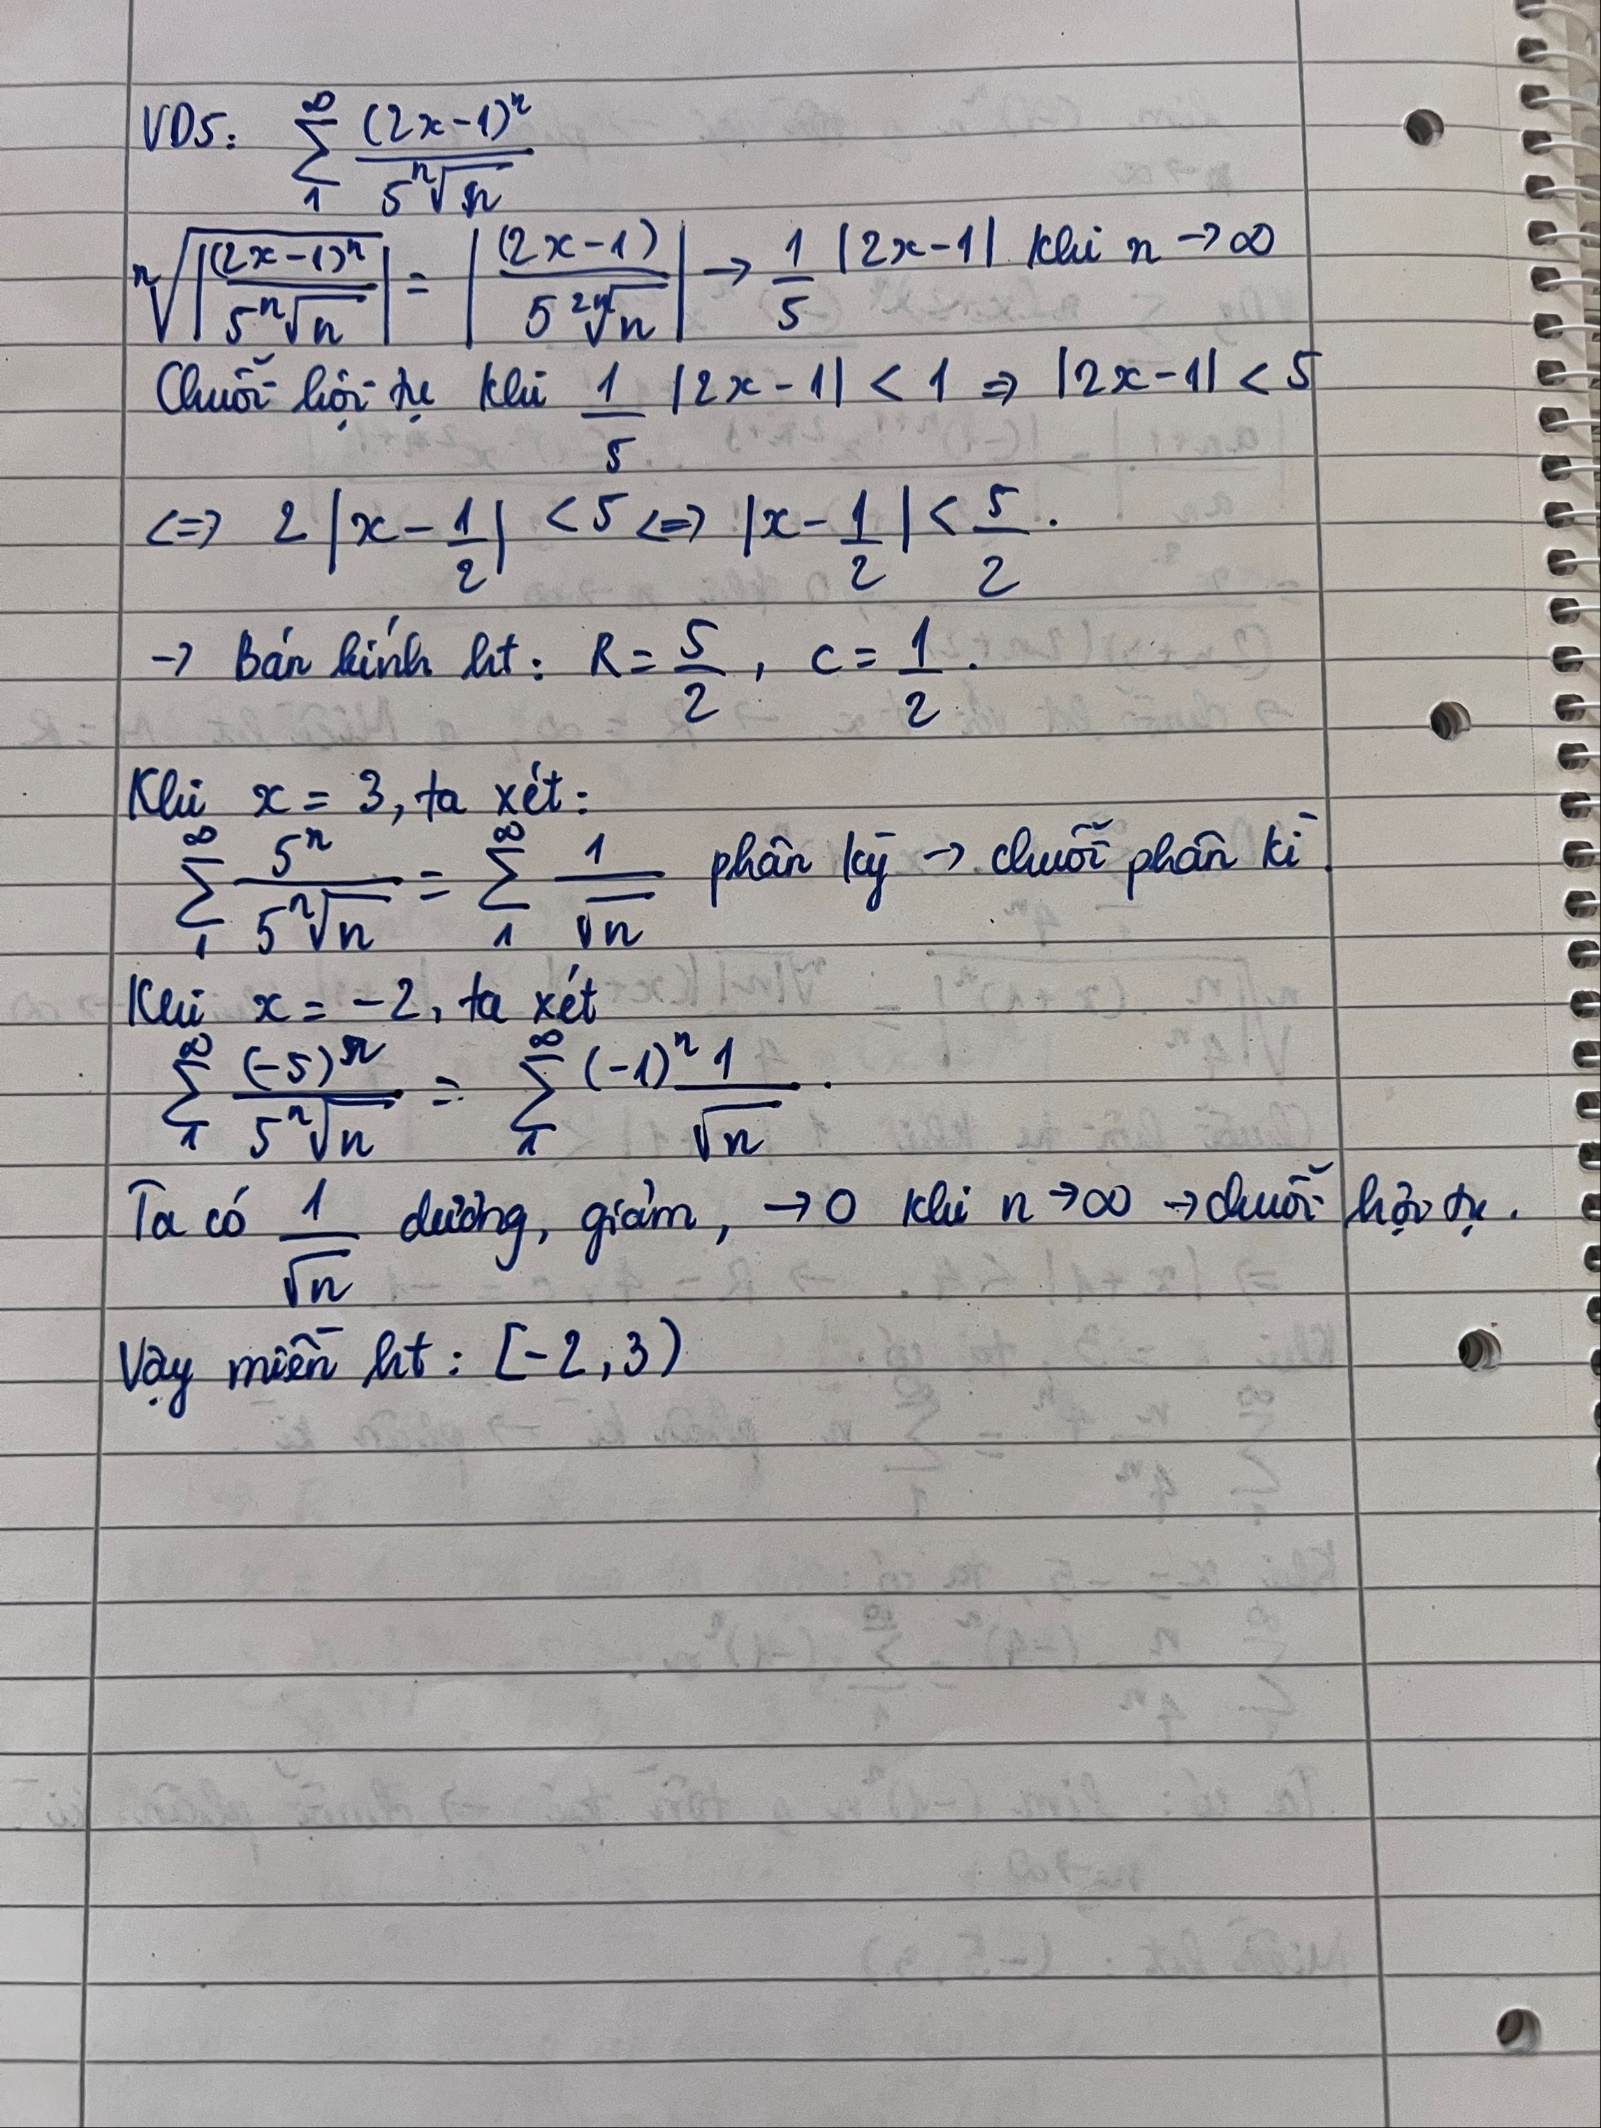 VD5: ∑_1^∞ (2x-1)^n / (5^n √n)
ⁿ√|(2x-1)^n / (5^n √n)| = |(2x-1) / (5 ²ⁿ√n)| → 1/5 |2x-1| khi n → ∞
Chuỗi hội tụ khi 1/5 |2x-1| < 1 ⇒ |2x-1| < 5
<=> 2 |x - 1/2| < 5 <=> |x - 1/2| < 5/2.
→ Bán kính ht: R = 5/2, c = 1/2.
Khi x = 3, ta xét:
∑_1^∞ 5^n / (5^n √n) = ∑_1^∞ 1/√n phân kỳ → chuỗi phân kì.
Khi x = -2, ta xét
∑_1^∞ (-5)^n / (5^n √n) = ∑_1^∞ (-1)^n 1/√n.
Ta có 1/√n dương, giảm, → 0 khi n → ∞ → chuỗi hội tụ.
Vậy miền ht: [-2, 3)